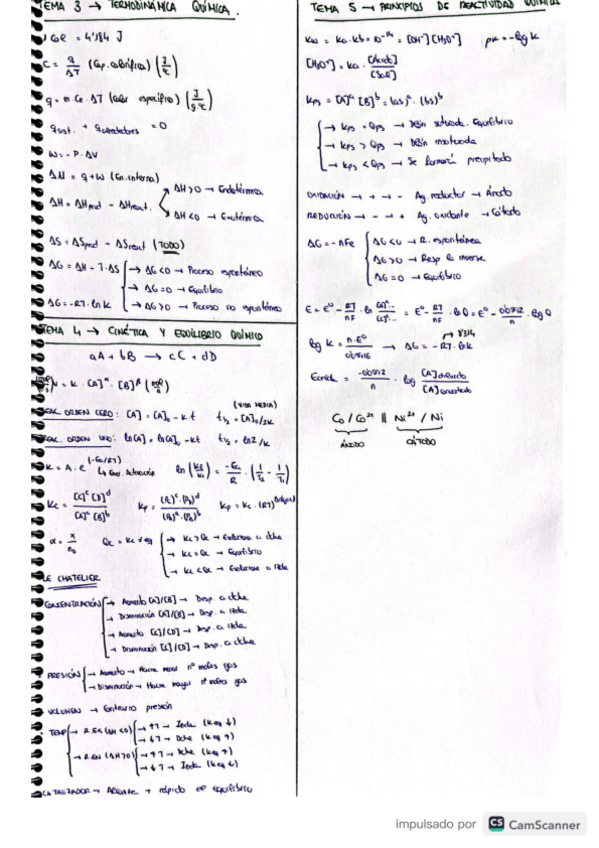 TEMA 3 → TERMODINÁMICA QUÍMICA.
1 cal = 4'184 J
C = q/ΔT (Cap. calorífica) (J/ºC)
q = m · Ce · ΔT (calor específico) (J/g·ºC)
qsist. + qalrededores = 0
W = - P · ΔV
ΔU = q + W (En. interna)
ΔH = ΔHprod - ΔHreact.
ΔH > 0 → Endotérmica
ΔH < 0 → Exotérmica
ΔS = ΔSprod - ΔSreact (TODO)
ΔG = ΔH - T · ΔS
ΔG < 0 → Proceso espontáneo
ΔG = 0 → Equilibrio
ΔG > 0 → Proceso no espontáneo
ΔG = - RT · ln K
TEMA 4 → CINÉTICA Y EQUILIBRIO QUÍMICO
aA + bB → cC + dD
V = K · [A]^α · [B]^β
REAC. ORDEN CERO: [A] = [A]₀ - Kt t½ = [A]₀/2K (VIDA MEDIA)
REAC. ORDEN UNO: ln[A] = ln[A]₀ - Kt t½ = ln2/K
K = A · e^(-Ea/RT) ln (K2/K1) = -Ea/R · (1/T2 - 1/T1)
↳ En. Activación
Kc = [C]^c [D]^d / [A]^a [B]^b Kp = (Pc)^c · (PD)^d / (PA)^a · (PB)^b Kp = Kc · (RT)
α = x/n₀
Kc > Qc → Evoluciona a dcha
Kc = Qc → Equilibrio
Kc < Qc → Evoluciona a izda
LE CHATELIER
CONCENTRACIÓN
→ Aumento [A]/[B] → Desp. a dcha
→ Disminución [A]/[B] → Desp. a izda
→ Aumento [C]/[D] → Desp. a izda
→ Disminución [C]/[D] → Desp. a dcha
PRESIÓN
→ Aumento → Hacia menor nº moles gas
→ Disminución → Hacia mayor nº moles gas
VOLUMEN → Contrario presión
TEMP
→ R.EX (ΔH < 0)
→ ↑T → Izda (Keq ↓)
→ ↓T → Dcha (Keq ↑)
→ R.EN (ΔH > 0)
→ ↑T → Dcha (Keq ↑)
→ ↓T → Izda (Keq ↓)
CATALIZADOR → + rápido el equilibrio
TEMA 5 → PRINCIPIOS DE REACTIVIDAD QUÍMICA
Kw = Ka · Kb = 10⁻¹⁴ = [OH⁻][H₃O⁺] pK = - log K
[H₃O⁺] = Ka · [Ácido]/[Sal]
Kps = [A]^a [B]^b = (as)^a · (bs)^b
→ Kps = Qps → Disln saturada. Equilibrio
→ Kps > Qps → Disln insaturada
→ Kps < Qps → Se formará precipitado
OXIDACIÓN → + → - Ag. reductor → Ánodo
REDUCCIÓN → - → + Ag. oxidante → Cátodo
ΔG = - nFe
ΔG < 0 → R. espontánea
ΔG > 0 → Resp la inversa
ΔG = 0 → Equilibrio
= E⁰ - RT/nF · ln Q = E⁰ - 0'0592/n · log Q
log K = n · E⁰/0'0592 → ΔG = - RT · ln K
8'314
-0'0592/n · log
Co / Co²⁺ || Ni²⁺ / Ni
ÁNODO CÁTODO
impulsado por CS CamScanner